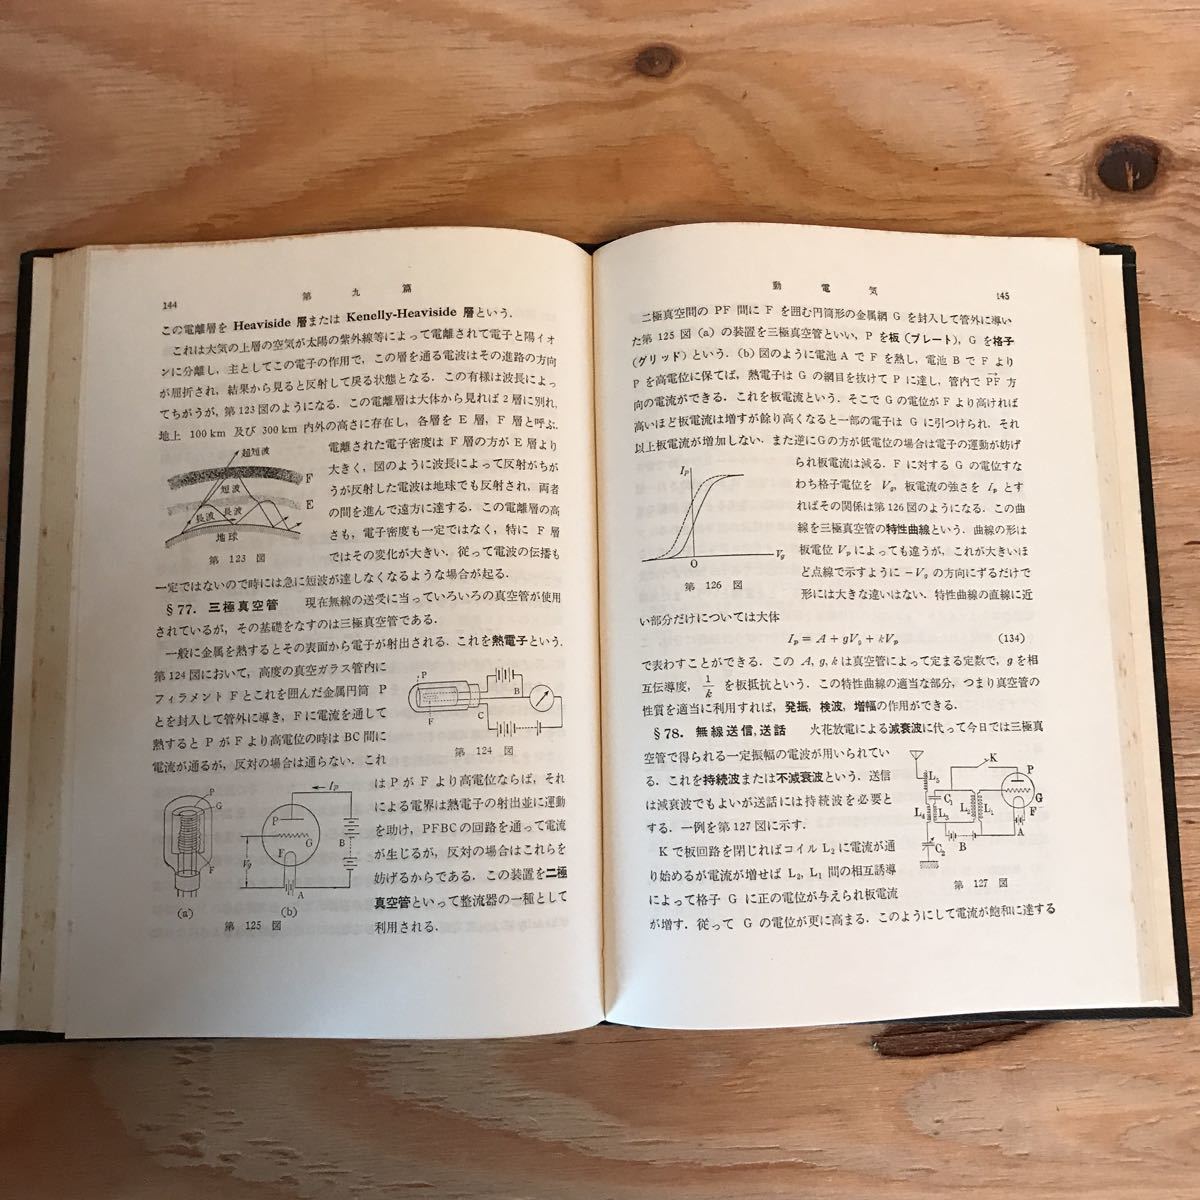 144
第九篇
この電離層を Heaviside 層または Kenelly-Heaviside 層という.
これは大気の上層の空気が太陽の紫外線等によって電離されて電子と陽イオ
ンに分離し, 主としてこの電子の作用で, この層を通る電波はその進路の方向
が屈折され, 結果から見ると反射して戻る状態となる. この有様は波長によっ
てちがうが, 第123図のようになる. この電離層は大体から見れば2層に別れ,
地上 100km 及び 300km 内外の高さに存在し, 各層を E 層, F 層と呼ぶ.
電離された電子密度は F 層の方が E 層より
大きく, 図のように波長によって反射がちが
うが反射した電波は地球でも反射され, 両者
の間を進んで遠方に達する. この電離層の高
さも, 電子密度も一定ではなく, 特に F 層
ではその変化が大きい. 従って電波の伝播も
超短波
短波
F
E
長波
長波
地球
第 123 図
一定ではないので時には急に短波が達しなくなるような場合が起る.
§77. 三極真空管 現在無線の送受に当っていろいろの真空管が使用
されているが, その基礎をなすのは三極真空管である.
一般に金属を熱するとその表面から電子が射出される. これを熱電子という.
第124図において, 高度の真空ガラス管内に
フィラメント F とこれを囲んだ金属円筒 P
とを封入して管外に導き, F に電流を通して
熱すると P が F より高電位の時は BC 間に
電流が通るが, 反対の場合は通らない. これ
P
F
B
C
第 124 図
はPがF より高電位ならば, それ
による電界は熱電子の射出並に運動
を助け, PFBCの回路を通って電流
が生じるが, 反対の場合はこれらを
妨げるからである. この装置を二極
真空管といって整流器の一種として
利用される.
P
G
F
(a)
Ip
P
G
F
Vg
B
A
(b)
第 125 図
動電気
145
二極真空間の PF 間に F を囲む円筒形の金属網 G を封入して管外に導い
た第 125 図 (a) の装置を三極真空管といい, P を板(プレート), G を格子
(グリッド)という. (b) 図のように電池 A で F を熱し, 電池 B で F より
P を高電位に保てば, 熱電子は G の網目を抜けて P に達し, 管内で PF 方
向の電流ができる. これを板電流という. そこで G の電位が F より高ければ
高いほど板電流は増すが余り高くなると一部の電子は G に引つけられ, それ
以上板電流が増加しない. また逆にGの方が低電位の場合は電子の運動が妨げ
られ板電流は減る. F に対する G の電位すな
わち格子電位を Vg, 板電流の強さを Ip とす
ればその関係は第126図のようになる. この曲
線を三極真空管の特性曲線という. 曲線の形は
板電位 Vp によっても違うが, これが大きいほ
ど点線で示すように −Vg の方向にずるだけで
形には大きな違いはない. 特性曲線の直線に近
Ip
Vg
O
第 126 図
い部分だけについては大体
Ip = A + gVg + kVp (134)
で表わすことができる. この A, g, k は真空管によって定まる定数で, g を相
互伝導度, 1/k を板抵抗という. この特性曲線の適当な部分, つまり真空管の
性質を適当に利用すれば, 発振, 検波, 増幅の作用ができる.
§78. 無線送信, 送話 火花放電による減衰波に代って今日では三極真
空管で得られる一定振幅の電波が用いられてい
る. これを持続波または不減衰波という. 送信
は減衰波でもよいが送話には持続波を必要と
する. 一例を第127図に示す.
K で板回路を閉じればコイル L2 に電流が通
り始めるが電流が増せば L2, L1 間の相互誘導
によって格子 G に正の電位が与えられ板電流
が増す. 従って G の電位が更に高まる. このようにして電流が飽和に達する
K
P
G
F
L5
C1
L4
L3
L2
L1
A
B
C2
第 127 図